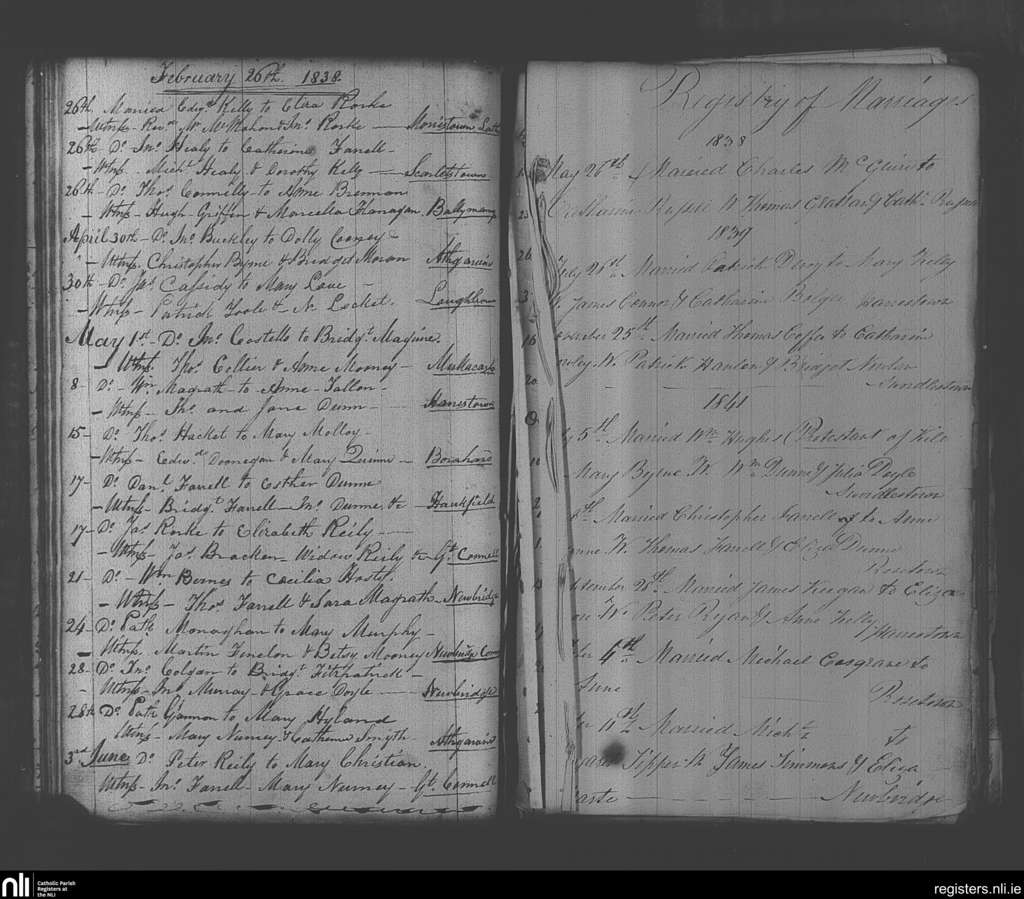 February 26th. 1838.
26th. Married Edwd. Kelly to Eliza Rorke
- Wtnss - Revd. Mr. McMahon & Jno. Rorke - Morristown Latt
26th Do. Jno. Healy to Catherine Farrell -
- Wtnss. Michl. Healy & Dorothy Kelly - Scarletstown
26th - Do. Thos. Connelly to Anne Brennan
- Wtnss - Hugh Griffin & Marcella Flanagan Ballymany
April 30th - Do. Jno. Buckley to Dolly Cooney -
- Wtnss. Christopher Byrne & Bridget Moran Athgarvin
30th - Do. Jas. Cassidy to Mary Lowe -
- Wtnss - Patrick Toole & N. Locket.
May 1st - Do. Jno. Costello to Bridgt. Maguire.
- Wtnss. Thos. Collier & Anne Mooney -
8 - Do. - Wm. Magrath - to Anne - Fallon -
- Wtnss - Thos. and Jane Dunn - Hanestown
15 - Do. Thos. Hacket to Mary Molloy -
- Wtnss - Edwd. Doonegan & Mary Quinn -
17 - Do. Danl. Farrell to Esther Dunne
- Wtnss - Bridgt. Farrell - Jno. Dunne &c Hawkfield
17 - Do. Jas. Rorke to Elizabeth Reily -
- Wtnss - Jas. Bracken - Widow Reily &c Gt. Connell
21 - Do. - Wm. Bernes to Caecilia Hosty.
- Wtnss - Thos. Farrell & Sara Magrath - Newbridge
24 - Do. Patk. Monaghan to Mary Murphy -
- Wtnss. Martin Finelon & Betsy Mooney Newbridge Com
28 - Do. Jno. Colgan to Bridgt. Fitzpatrick -
- Wtnss - Jno. Murray & Grace Doyle - Newbridge
28th Do. Patk. Gannon to Mary Hyland
Wtnss - Mary Nurney & Catherine Smyth Athgarvin
3rd June Do. Peter Reily to Mary Christian.
Wtnss - Jno. Farrell - Mary Nurney - Gt. Connell
Registry of Marriages
1838
May 26th Married Charles McGuire to
W Thomas Grattan & Cath.
1839
21st Married Patrick Derry to Mary Kelly
James Connor & Catharine Bolger Janestown
25th Married Thomas to Catharin
W. Patrick Hanlon & Bridget Nowlan
Rundlestown
1841
5th Married Wm Hughes (Protestant of Kil
Mary Byrne W. Wm Dunne & Julia Doyle
Rundlestown
6th Married Christopher Farrell of to Anne
W. Thomas Farrell & Eliza Dunne
Rosetown
28th Married James Keegan to Eliza
W Peter Ryan & Anne Kelly
Janestown
4th Married Michael Cosgrave to
June
Rosetown
11th Married Michl
Tipper W James Timmons & Eliza
Newbridge
nli
Catholic Parish
Registers at
the NLI
registers.nli.ie